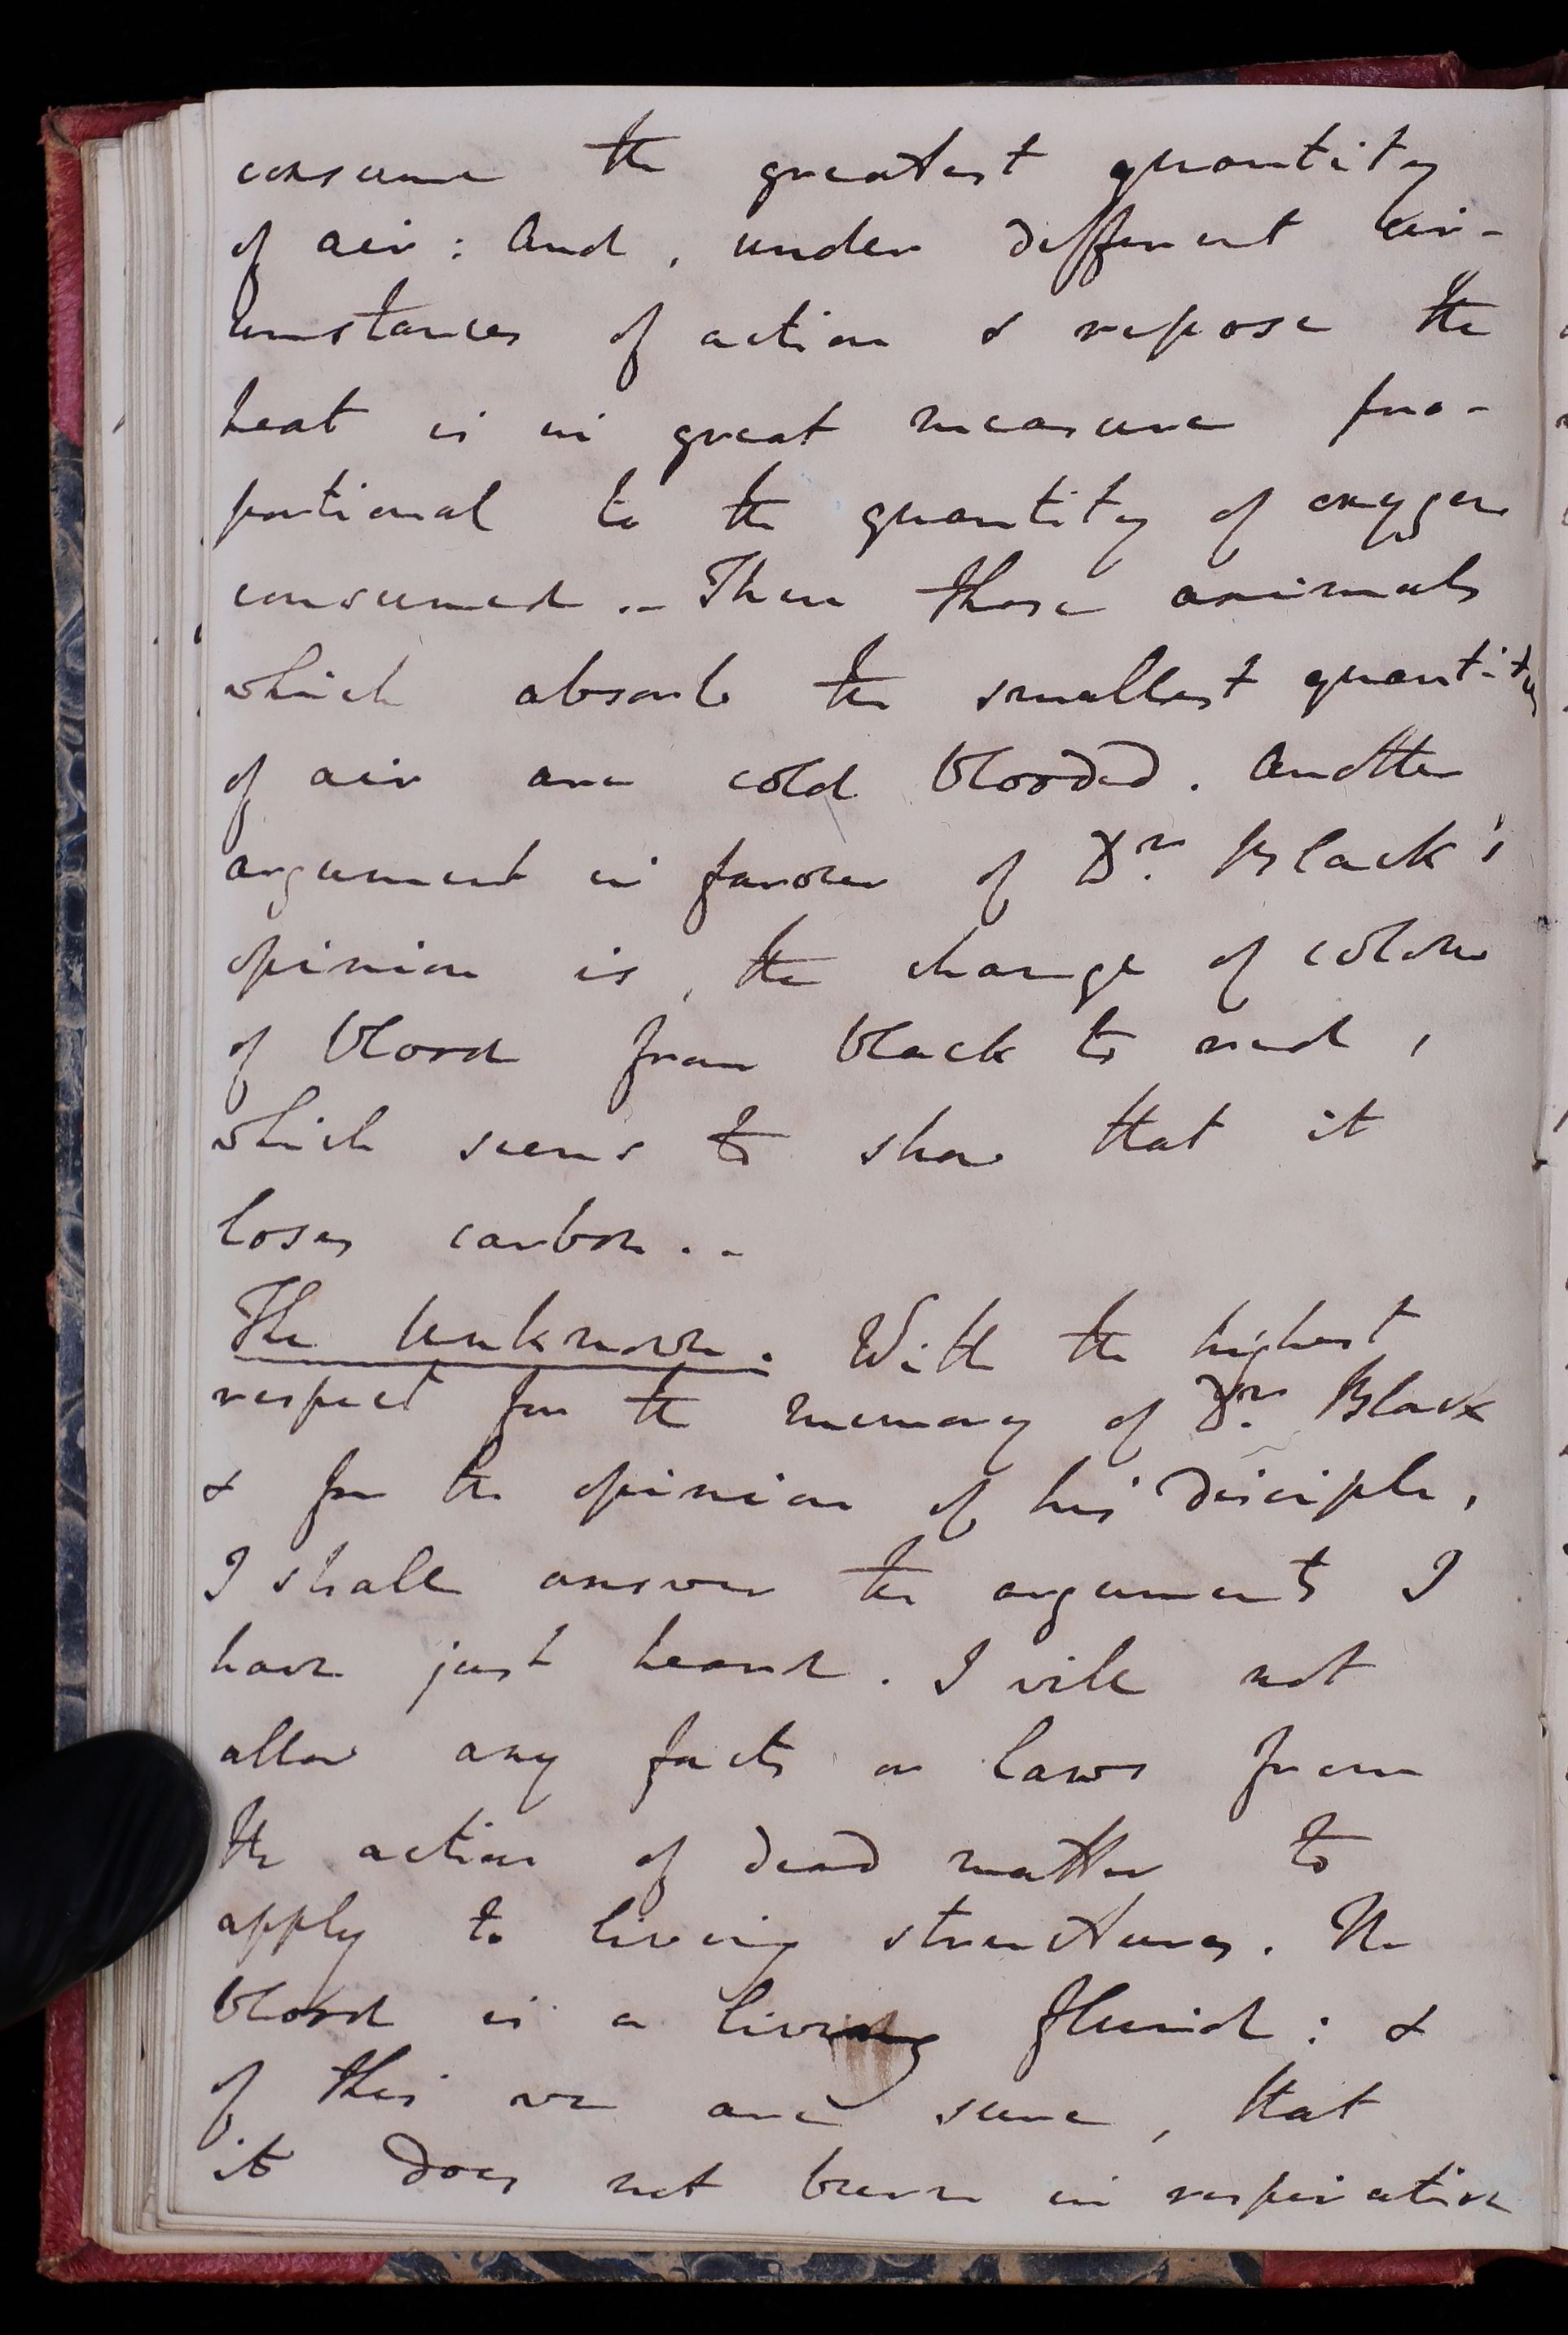 consume the greatest quantity
of air: And, under different cir-
cumstances of action & repose the
heat is in great measure pro-
portional to the quantity of oxygen
consumed.– Then those animals
which absorb the smallest quantity
of air are cold blooded. Another
argument in favour of Dr. Black's
opinion is, the change of colour
of blood from black to red,
which seems to show that it
loses carbon.–
The Unknown. With the highest
respect for the memory of Dr. Black
& for the opinion of his disciple,
I shall answer the arguments I
have just heard. I will not
allow any facts or laws from
the action of dead matter to
apply to living structures. The
blood is a living fluid: &
of this we are sure, that
it does not burn in respiration